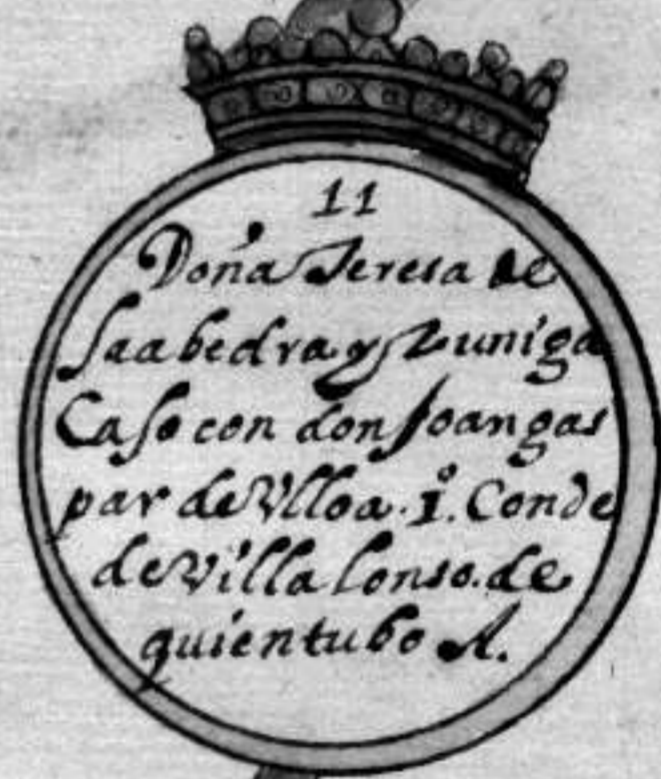 11
Doña Teresa de
Saabedra y Zuniga
Caso con don Joan gas
par de Vlloa. 1º. Conde
de Villalonso. de
quien tubo A.